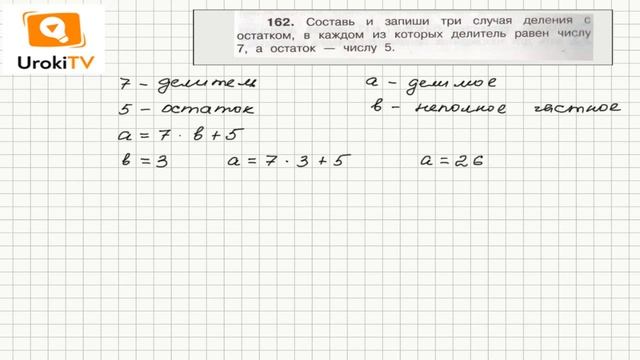 162. Составь и запиши три случая деления с
остатком, в каждом из которых делитель равен числу
7, а остаток — числу 5.
UrokiTV
7 - делитель a - делимое
5 - остаток в - неполное частное
a = 7 · в + 5
в = 3 a = 7 · 3 + 5 a = 26